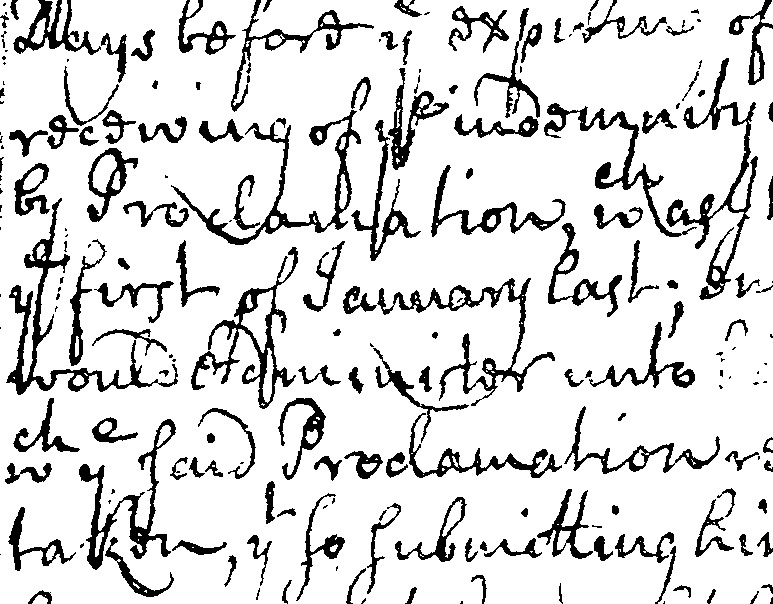 Days before ye expirãn of
receiving of ye indemnity
by Proclamation, wch was
ye first of January last; 
would Administer unto
wch ye said Proclamation
taken, yt so submitting